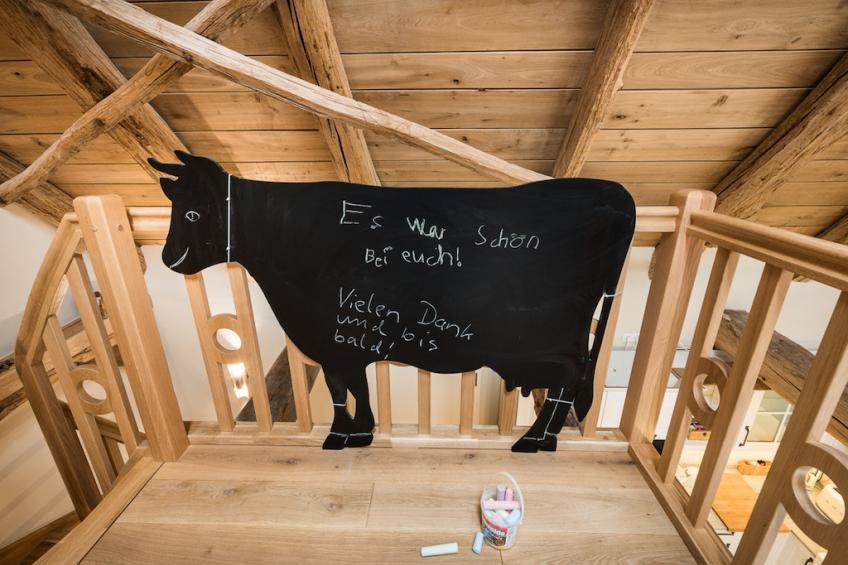 Es war Schön
Bei euch!
Vielen Dank
und bis
bald!